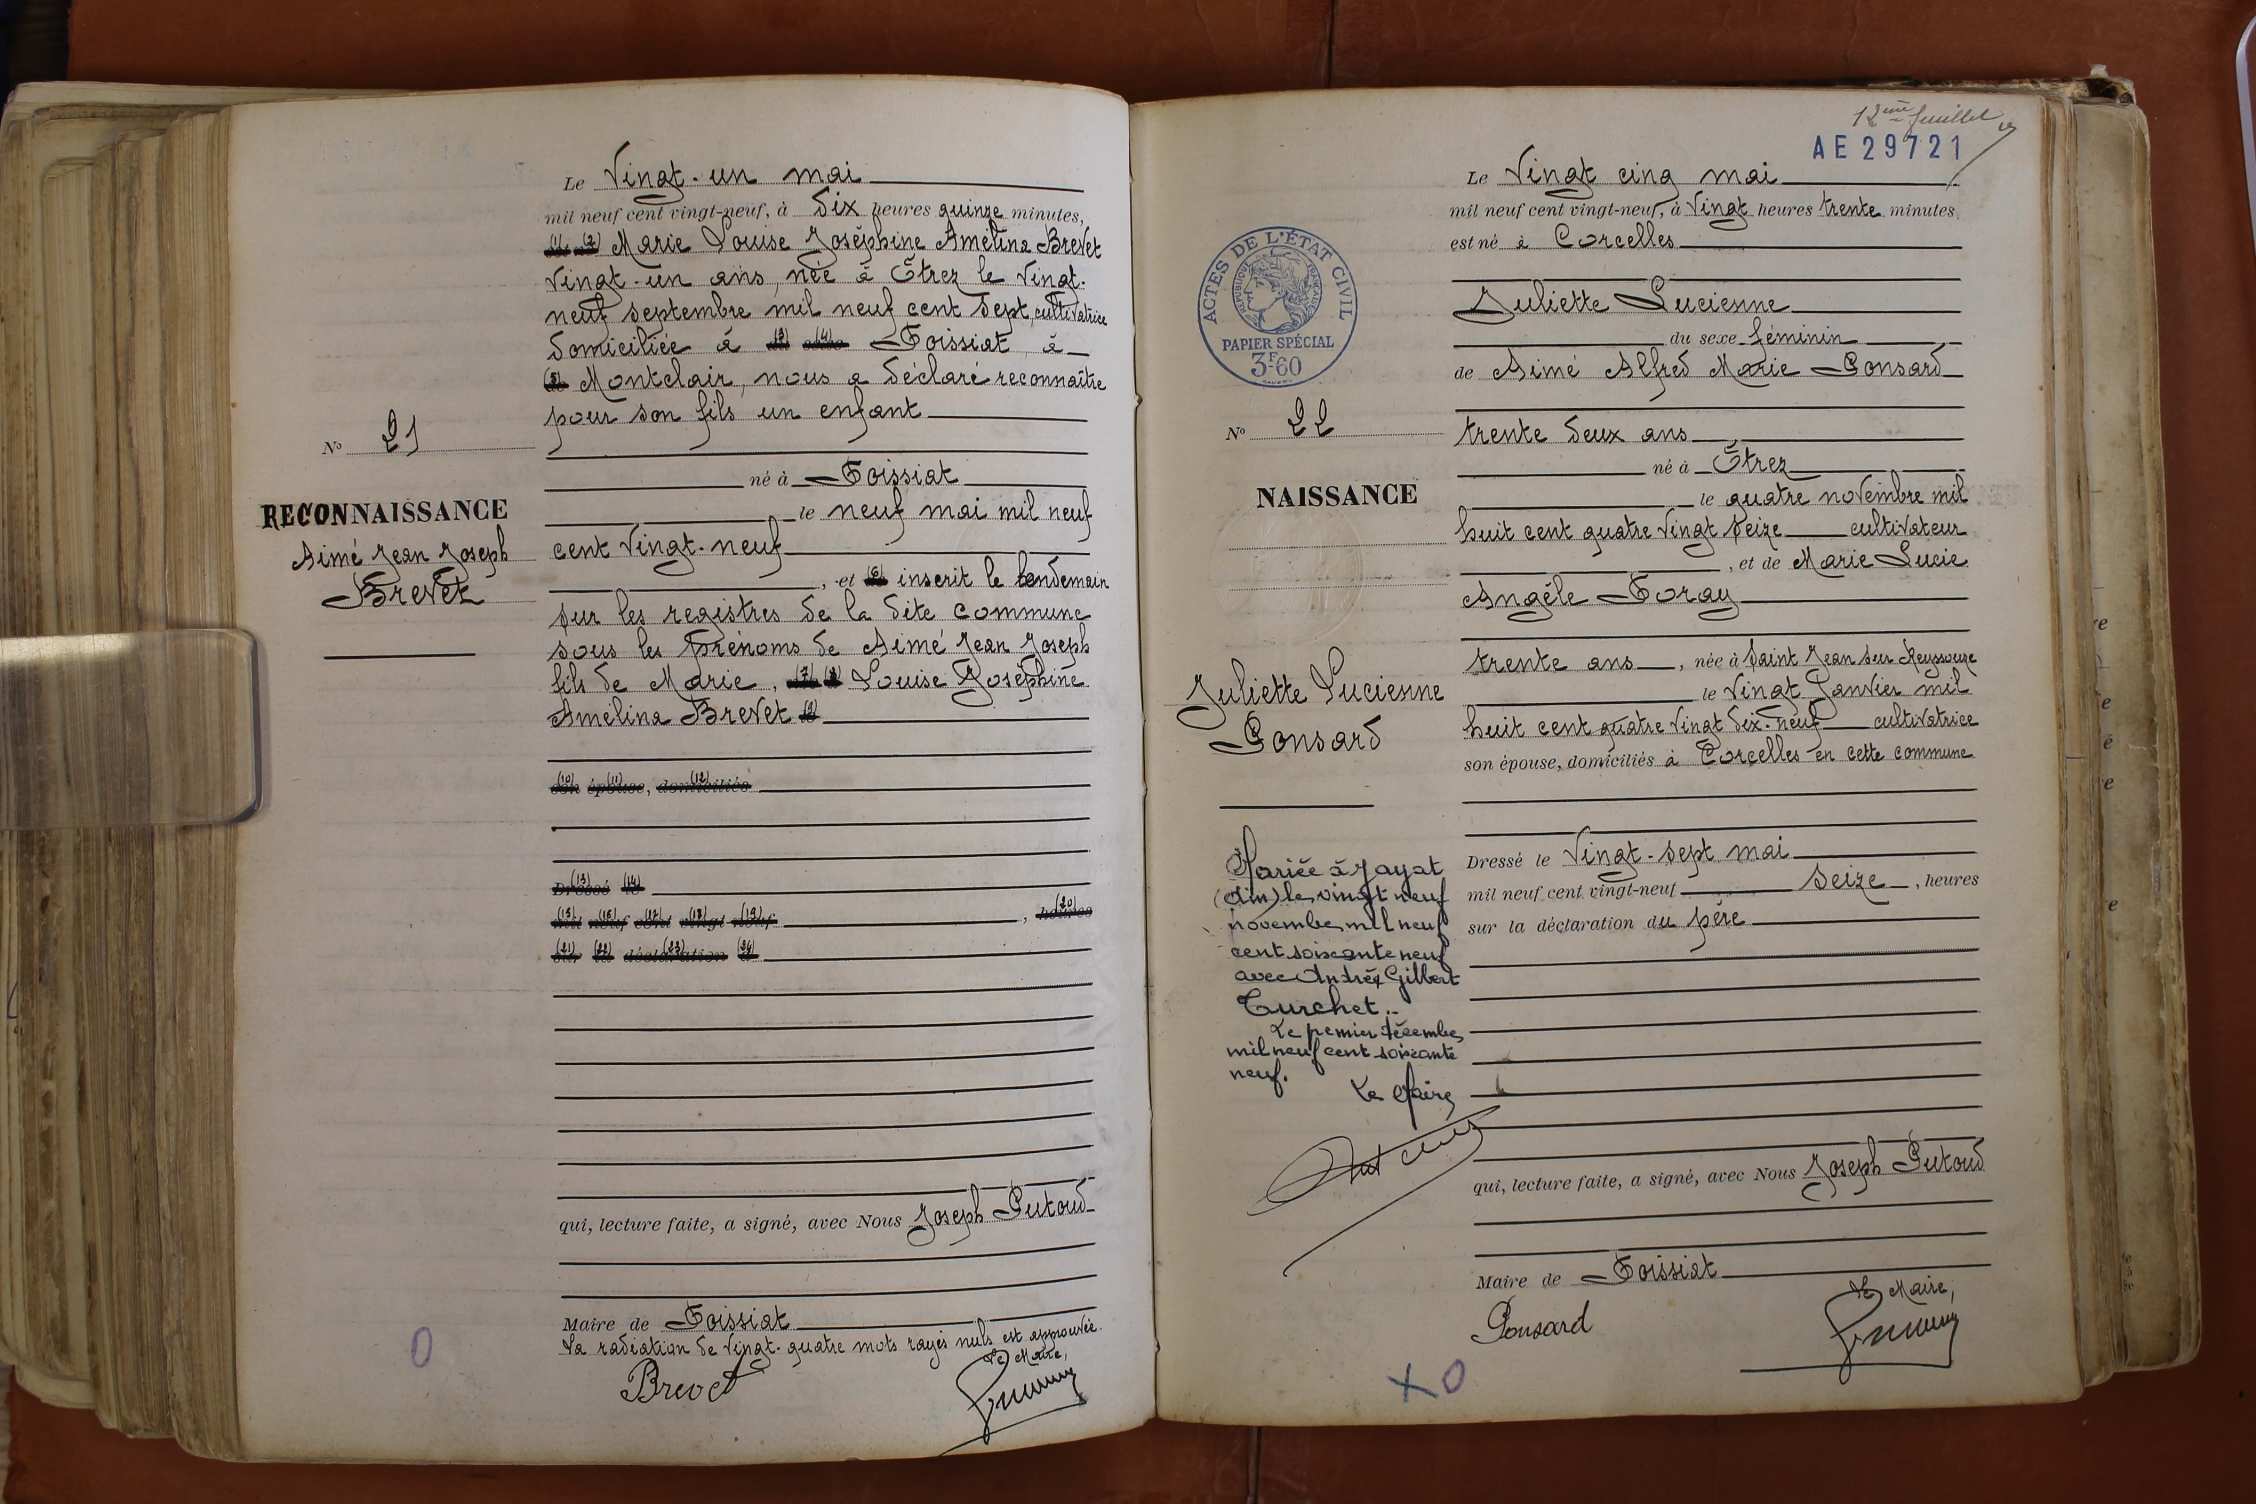 Le Vingt-un mai
mil neuf cent vingt-neuf, à dix heures quinze minutes,
(1) (2) Marie Louise Joséphine Amélina Brevet
Vingt-un ans, née à Étrez le vingt-
neuf septembre mil neuf cent sept, cultivatrice
domiciliée à (3) (4) Foissiat, à
(5) Montclair, nous a déclaré reconnaître
pour son fils un enfant
No 21
né à Foissiat
RECONNAISSANCE
le neuf mai mil neuf
Aimé Jean Joseph
Brevet
cent vingt-neuf
, et (6) inscrit le lendemain
sur les registres de la dite commune
sous les prénoms de Aimé Jean Joseph
fils de Marie, (7) (8) Louise Joséphine
Amélina Brevet (9)
(10) son (11) épouse, (12) domiciliés
(13) Dressé (14) le
(15) mil (16) neuf (17) cent (18) vingt (19) neuf , (20) heures
(21) sur (22) la (23) déclaration (24) d
qui, lecture faite, a signé, avec Nous Joseph Putoud
Maire de Foissiat
La radiation de vingt-quatre mots rayés nuls est approuvée.
Le Maire,
Brevet
12ème feuillet
AE29721
Le Vingt cinq mai
mil neuf cent vingt-neuf, à vingt heures trente minutes
est né à Corcelles
Juliette Lucienne
du sexe féminin
de Aimé Alfred Marie Ponsard
ACTES DE L'ÉTAT CIVIL
RÉPUBLIQUE FRANÇAISE
PAPIER SPÉCIAL
3F60
No 22
trente deux ans
né à Étrez
NAISSANCE
le quatre novembre mil
huit cent quatre vingt seize cultivateur
, et de Marie Lucie
Angèle Foray
trente ans, née à Saint Jean sur Reyssouze
Juliette Lucienne
Ponsard
le vingt Janvier mil
huit cent quatre vingt dix-neuf cultivatrice
son épouse, domiciliés à Corcelles en cette commune
Dressé le Vingt-sept mai
mil neuf cent vingt-neuf seize, heures
sur la déclaration du père
Mariée à Jayat
(Ain) le vingt neuf
novembre mil neuf
cent soixante neuf
avec André Gilbert
Turchet.
Le premier décembre
mil neuf cent soixante
neuf.
Le Maire
qui, lecture faite, a signé, avec Nous Joseph Putoud
Maire de Foissiat
Le Maire,
Ponsard